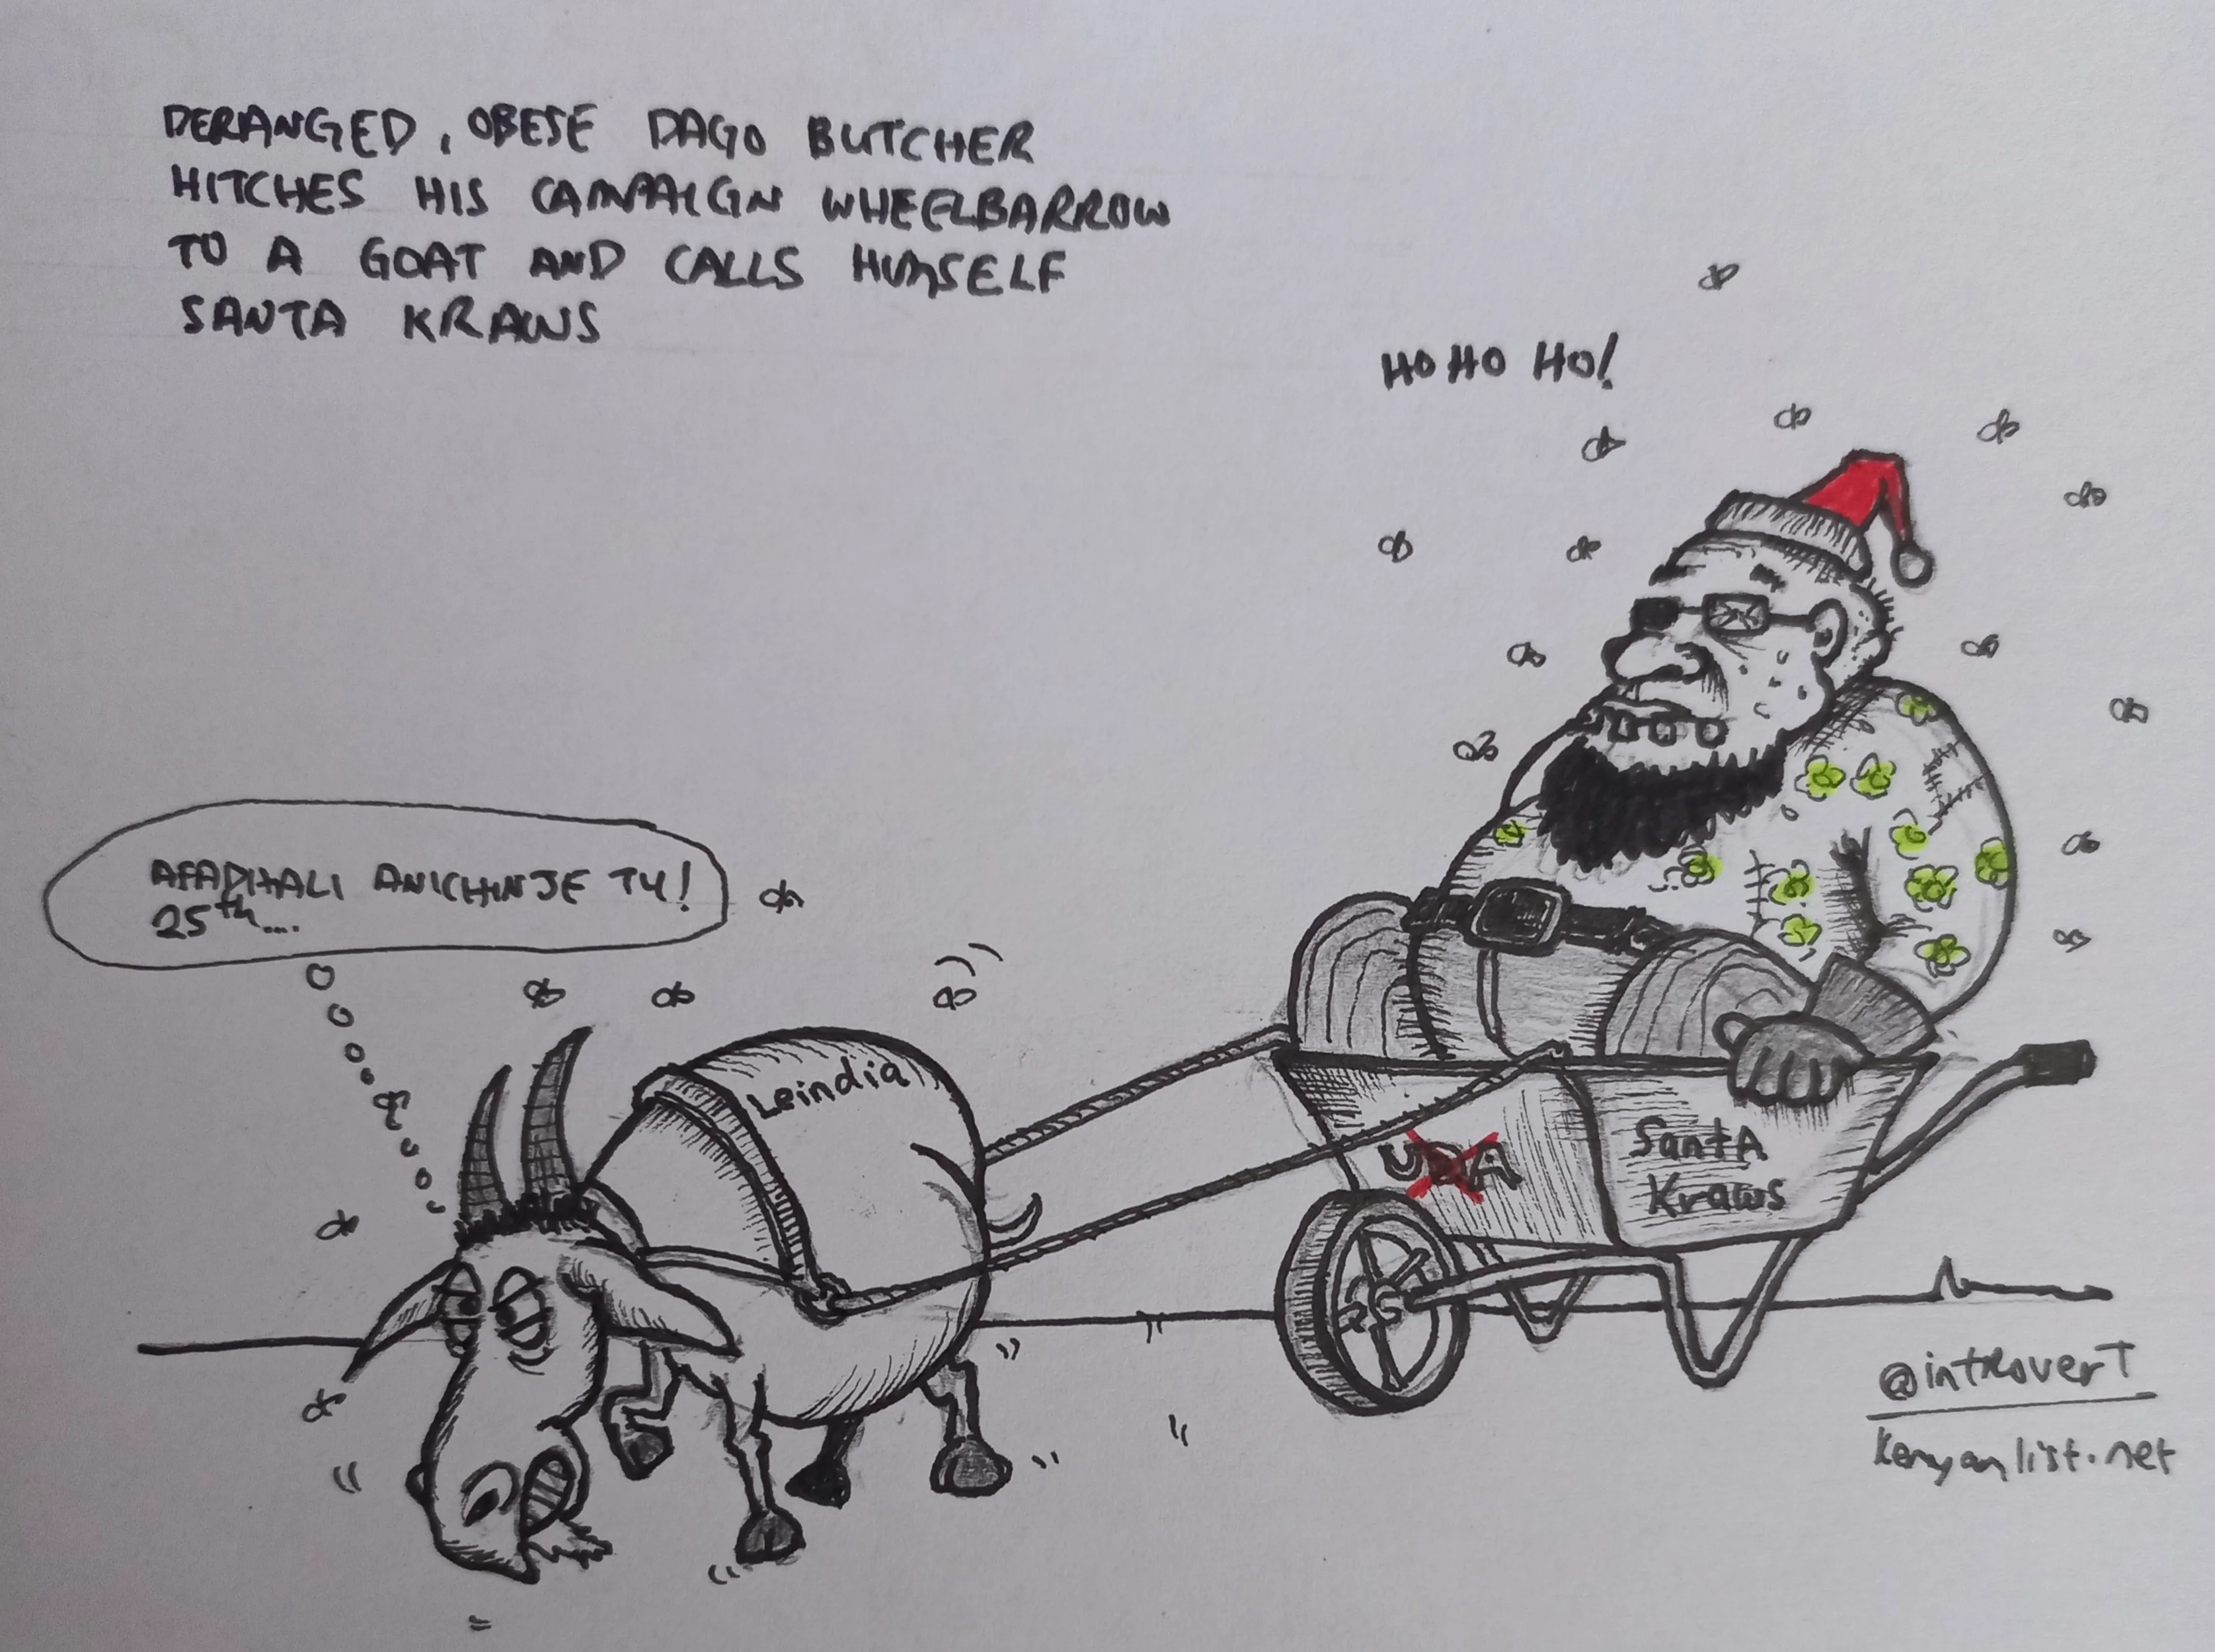 DERANGED, OBESE DAGO BUTCHER
HITCHES HIS CAMPAIGN WHEELBARROW
TO A GOAT AND CALLS HIMSELF
SANTA KRAWS
HO HO HO!
AFADHALI ANICHINJE TU!
25th....
Leindia
UDA
Santa
Kraws
@introverT
kenyanlist.net